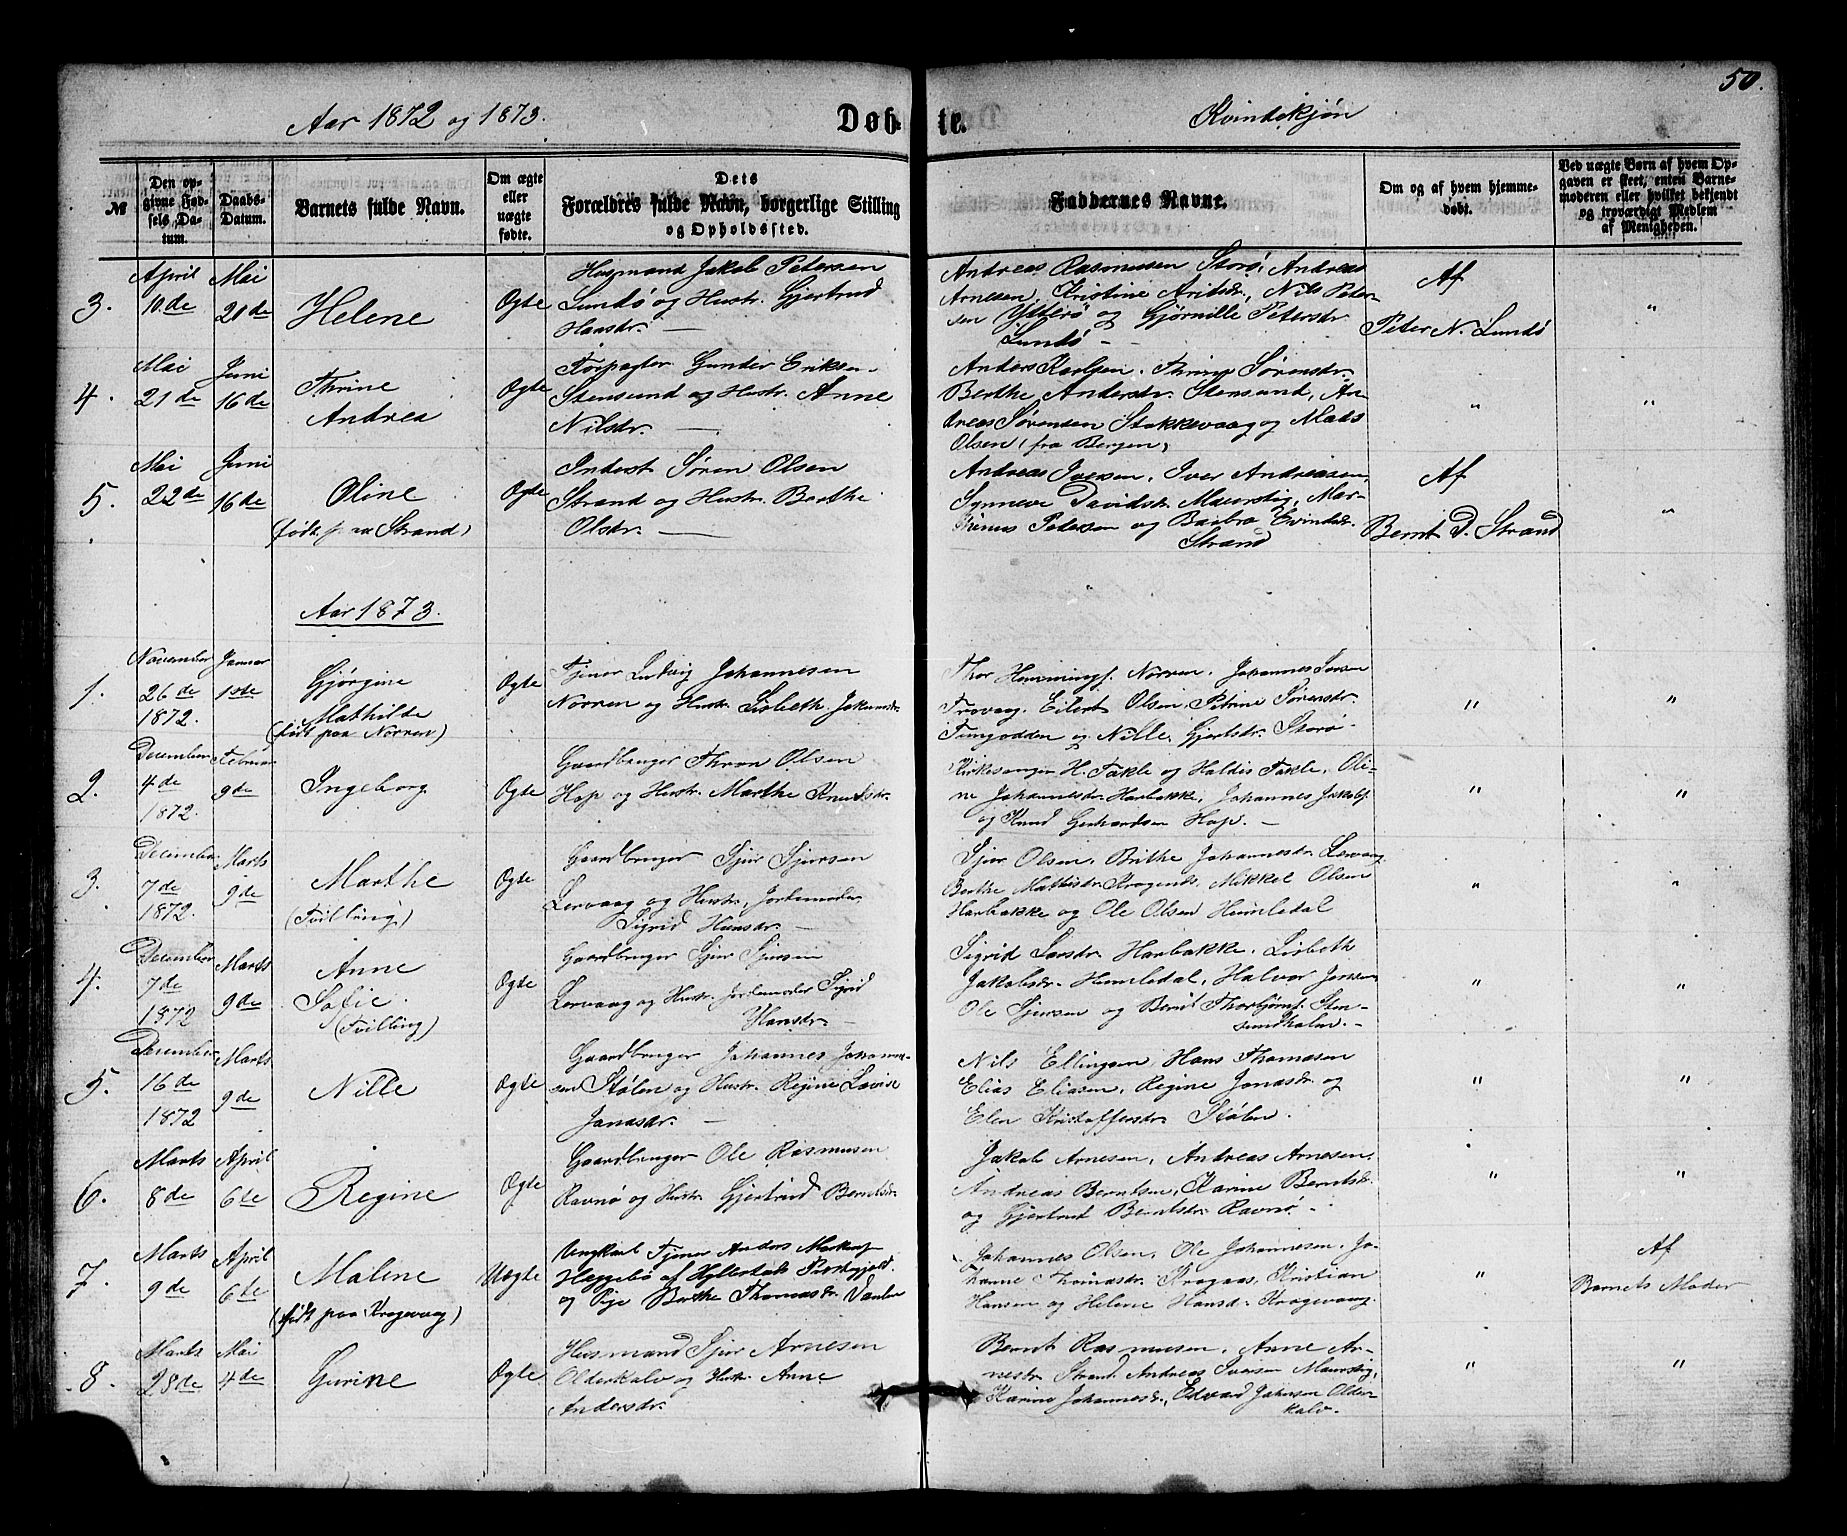 50.
Aar 1872 og 1873.
Døbte.
Kvindekjøn
№
Den opgivne Fødsels Datum.
Daabs-Datum.
Barnets fulde Navn.
Om ægte eller uægte fødte.
Dets
Forældres fulde Navn, borgerlige Stilling
og Opholdssted.
Faddernes Navne.
Om og af hvem hjemmedøbt.
Ved uægte Børn af hvem Opgaven er skeet, enten Barnemoderen eller hvilket bekjendt og troværdigt Medlem af Menigheden.
3.
April 10de
Mai 21de
Helene
Ægte
Husmand Jakob Petersen
Lundø og Hustr. Gjertrud
Hansdr. —
Andreas Rasmussen Storø, Andreas
Arnesen, Kristine Arilsdr., Nils Peter-
sen Ytterø og Gjørnille Petersdr.
Lundø —
Af
Peter N. Lundø
"
4.
Mai 21de
Juni 16de
Thrine
Andrea
Ægte
Forpagter Gunder Eriksen
Stensund og Hustr. Anne
Nilsdr. —
Anders Karlsen, Thrine Sørensdr.
Berthe Andersdr. Stensund, An-
dreas Sørensen Stokkevaag og Mads
Olsen (fra Bergen)
"
"
5.
Mai 22de
Juni 16de
Oline
(født p. aa Strand)
Ægte
Inderst Søren Olsen
Strand og Hustr. Berthe
Olsdr. —
Andreas Iversen, Iver Andreasen,
Synneve Davidsdr. Maurstig, Mar-
Petersen og Barbro Evindsdr.
Strand
Af
Bernt D. Strand
"
Aar 1873.
1.
November 26de 1872.
Januar 1ste
Gjørgine
Mathilde
(født paa Norven)
Ægte
Tjener Ludvig Johannesen
Norven og Hustr. Lisbeth Jakobsdr.
Thor Hemmings. Norven, Johannes Larsen
Trovaag, Eilert Olsen, Petrine Sørensdr.
og Nille Gjertsdr. Storø
"
"
2.
December 4de 1872.
Februar 9de
Ingeborg
Ægte
Gaardbruger Thron Olsen
Hop og Hustr. Marthe Knudsdr.
Kirkesanger H. Takle og Haldis Takle, Oli-
ne Johannesdr. Harbakke, Johannes Jakobs.
og Knud Gerhardsen Hop. —
"
"
3.
December 7de 1872.
Marts 9de
Marthe
(Tvilling)
Ægte
Gaardbruger Sjur Sjursen
Lervaag og Hustr., Jordemoder
Sigrid Hansdr. —
Sjur Olsen, Brithe Johannesdr. Lervaag
Berthe Mattisdr. Krogenes, Mikkel Olsen
Harbakke og Ole Olsen Humledal
"
"
4.
December 7de 1872
Marts 9de
Anne
Sofie.
(Tvilling)
Ægte
Gaardbruger Sjur Sjursen
Lervaag og Hustr. Jordemoder Sigrid
Hansdr. —
Sigrid Larsdr. Harbakke, Lisbeth
Jakobsdr. Humledal, Halvor Jensen
Ole Sjursen og Bernt Thorbjørns. Sten-
sundholm. —
"
"
5.
December 16de 1872
Marts 9de
Nille
Ægte
Gaardbruger Johannes Johanne-
sen Stølen og Hustr. Regine Lovise
Jonasdr. —
Nils Ellingsen, Hans Thomasen
Elias Eliasen, Regine Jonasdr. og
Elen Kristoffersdr. Stølen.
"
"
6.
Marts 8de
April 6te
Regine
Ægte
Gaardbruger Ole Rasmusen
Ravnø og Hustr. Gjertrud Berntsdr.
Jakob Arnesen, Andreas Arnesen,
Andreas Berntsen, Karine Berntsdr.
og Gjertrut Berntsdr. Ravnø
"
"
7.
Marts 9de
April 6te
Malene
(født paa Krogevaag)
Uægte
Ungkarl Tjener Anders Markus.
Heggebø af Hyllestad Præstegjeld.
og Pige Berthe Thomasdr.
Johannes Olsen, Ole Johannesen, Jo-
hanne Thomasdr. Krogaas, Kristian
Hansen og Helene Hansdr. Krogevaag.
"
Af
Barnets Moder
8.
Marts 28de
Mai 4de
Gurine
Ægte
Husmand Sjur Arnesen
Olderkalv og Hustr. Anne
Andersdr.
Bernt Rasmusen, Anne Ar-
nesdr. Strand, Andreas Iversen Maurstig,
Karine Johannesdr., Edvard Johnsen Older-
kalv.
"
"